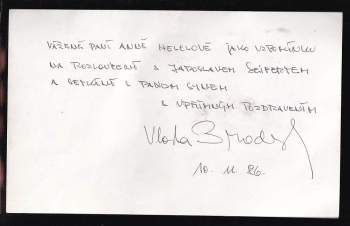 VÁŽENÉ PANÍ ANNĚ HELELOVÉ JAKO VZPOMÍNKU
NA ROZLOUČENÍ S JAROSLAVEM SEIFERTEM
A SETKÁNÍ S PANEM SYNEM
S UPŘÍMNÝM POZDRAVENÍM
Vlasta Brodský
10. 11. 86.